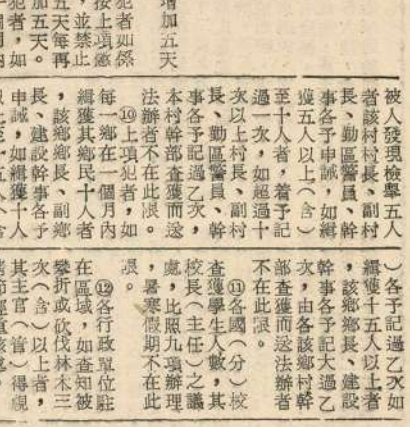 增加五天
犯者如係
按上項懲
，並禁止
五天每再
加五天。
犯者，如
被人發現檢舉五人
者該村村長、副村
長、勤區警員、幹
事各予申誡，如緝
獲五人以上（含）
至十人者，着予記
過一次，如超過十
次以上村長、副村
長、勤區警員、幹
事各予記過乙次，
本村幹部查獲而送
法辦者不在此限。
⑩上項犯者，如
每一鄉在一個月內
緝獲其鄉民十人者
，該鄉鄉長、副鄉
長、建設幹事各予
申誡，如緝獲十人
）各予記過乙次如
緝獲十五人以上者
，該鄉鄉長、建設
幹事各予記大過乙
次，由各該鄉村幹
部查獲而送法辦者
不在此限。
⑪各國（分）校
查獲學生人數，其
校長（主任）之議
處，比照九項辦理
，暑寒假期不在此
限。
⑫各行政單位駐
在區域，如查知被
攀折或砍伐林木三
次（含）以上者，
其主官（管）得視